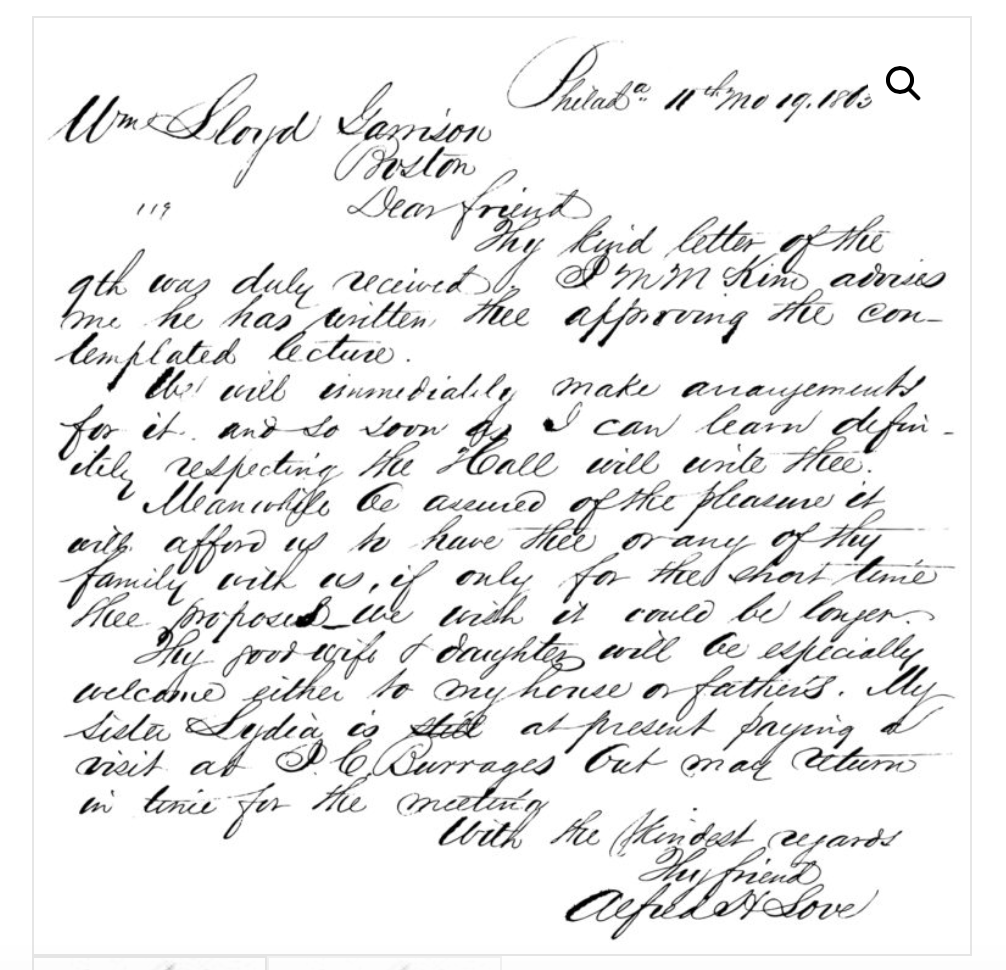 Philadᵃ 11ᵗʰ Mo 19. 1863
Wm Lloyd Garrison
Boston
119
Dear friend
Thy kind letter of the
9th was duly received. J M M Kim advises
me he has written thee approving the con-
templated lecture.
We will immediately make arrangements
for it. and so soon as I can learn defin-
itely respecting the Hall will write thee.
Meanwhile be assured of the pleasure it
will afford us to have thee or any of thy
family with us, if only for the short time
thee proposed_we wish it could be longer.
Thy good wife & daughter will be especially
welcome either to my house or father's. My
sister Lydia is still at present paying a
visit at J. C. Burrages but may return
in time for the meeting
With the kindest regards
Thy friend
Alfred H Love